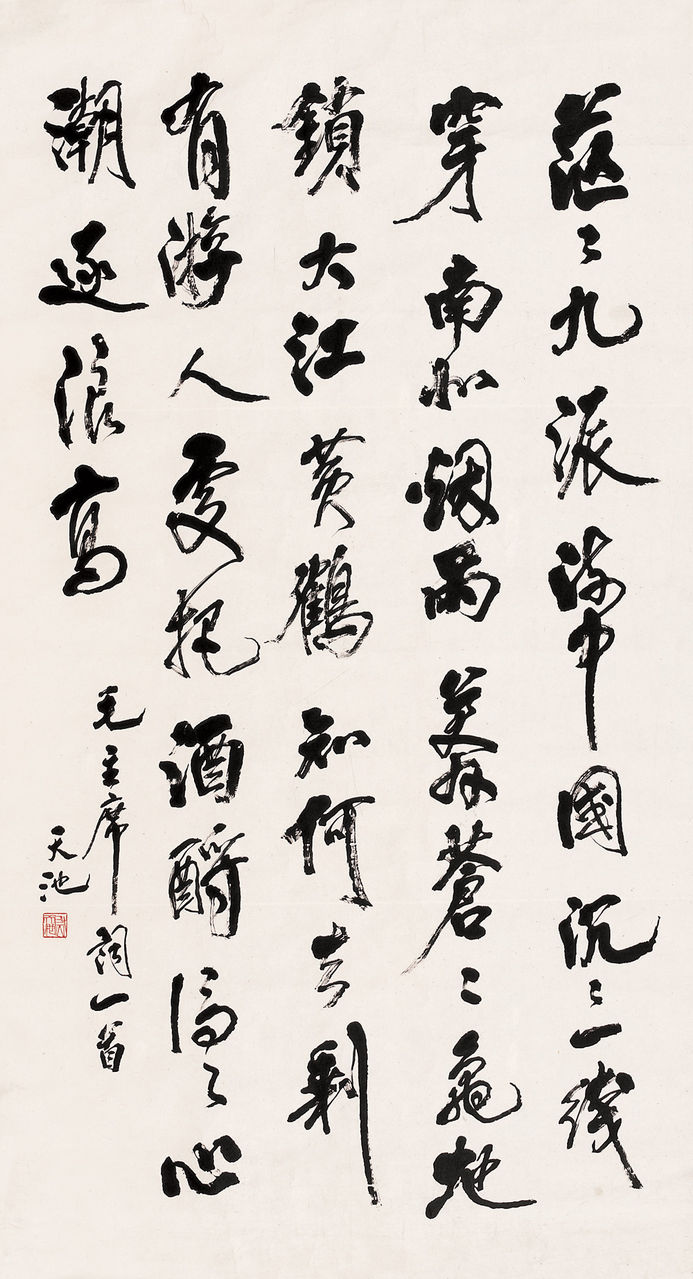 茫〻九派流中國沉〻一綫
穿南北烟雨莽蒼〻龜虵
鎖大江黄鶴知何去剩
有游人處把酒酹滔〻心
潮逐浪高
毛主席詞一首
天池